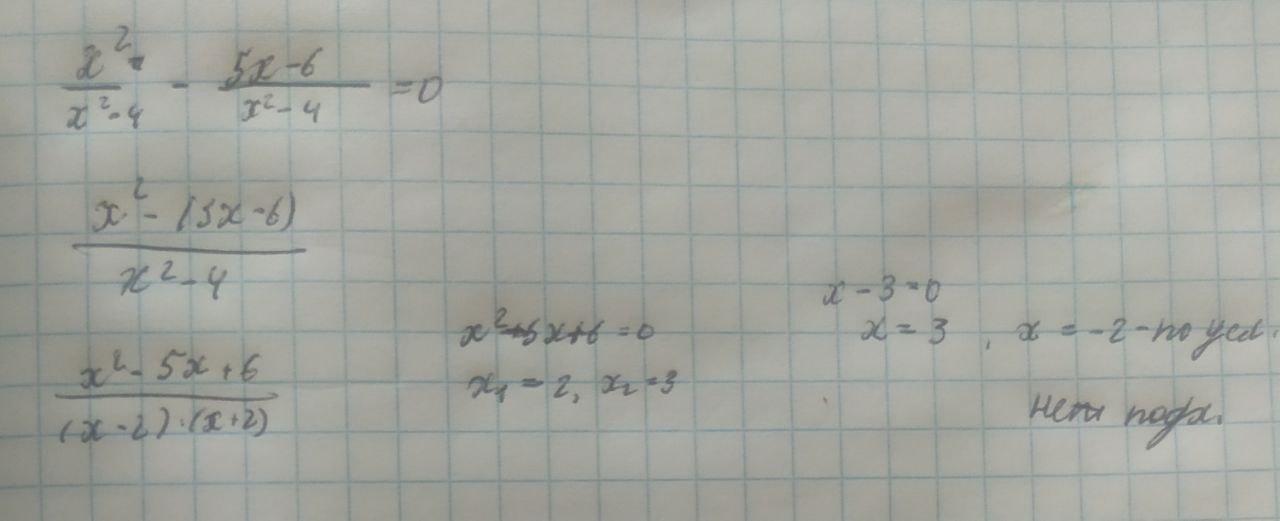 x² / (x² - 4) - (5x - 6) / (x² - 4) = 0
(x² - (5x - 6)) / (x² - 4)
(x² - 5x + 6) / ((x - 2) · (x + 2))
x² - 5x + 6 = 0
x₁ = 2, x₂ = 3
x - 3 = 0
x = 3 , x = -2 - по усл.
не подх.